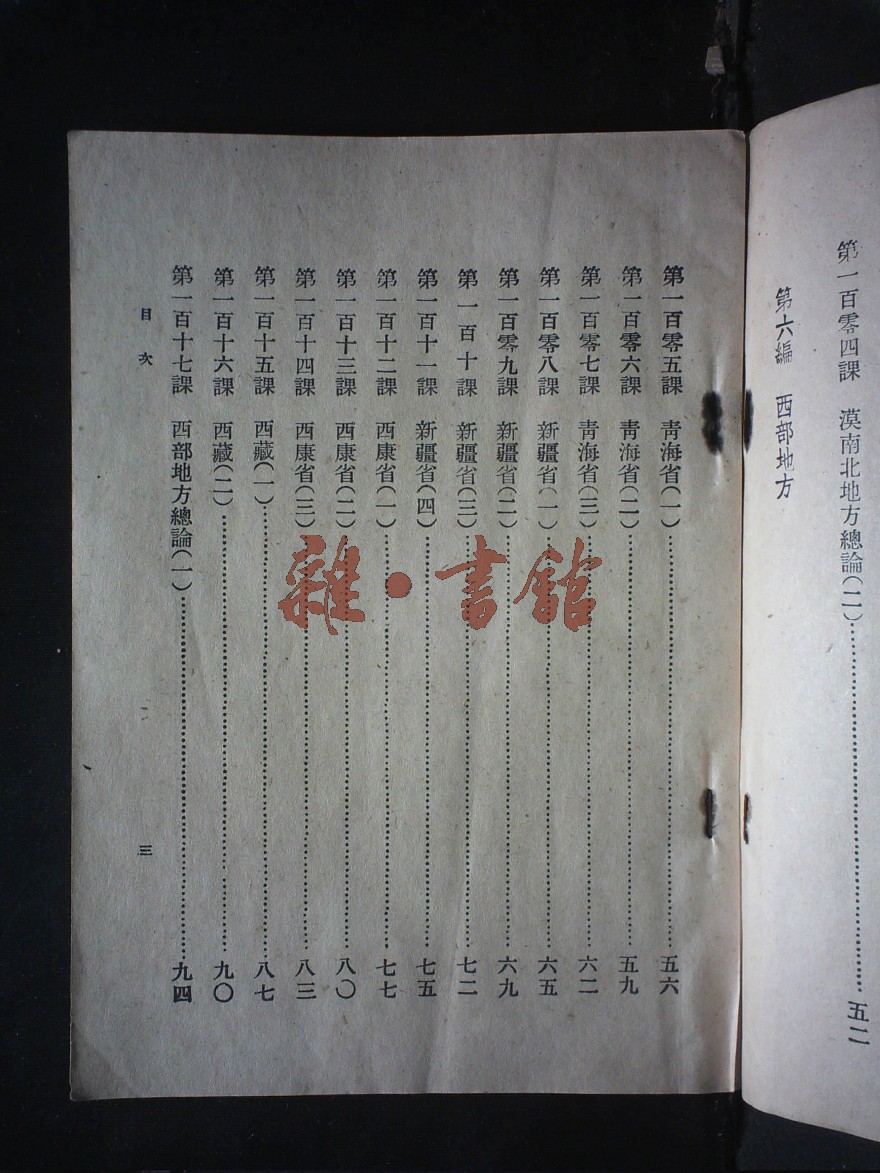 第一百零四課　漠南北地方總論(二)……五二
第六編　西部地方
第一百零五課　青海省(一)……五六
第一百零六課　青海省(二)……五九
第一百零七課　青海省(三)……六二
第一百零八課　新疆省(一)……六五
第一百零九課　新疆省(二)……六九
第一百十課　新疆省(三)……七二
第一百十一課　新疆省(四)……七五
第一百十二課　西康省(一)……七七
第一百十三課　西康省(二)……八〇
第一百十四課　西康省(三)……八三
第一百十五課　西藏(一)……八七
第一百十六課　西藏(二)……九〇
第一百十七課　西部地方總論(一)……九四
目次　三
雜·書館